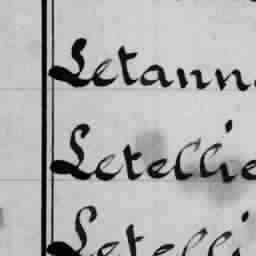 Letann
Letellie
Letelli